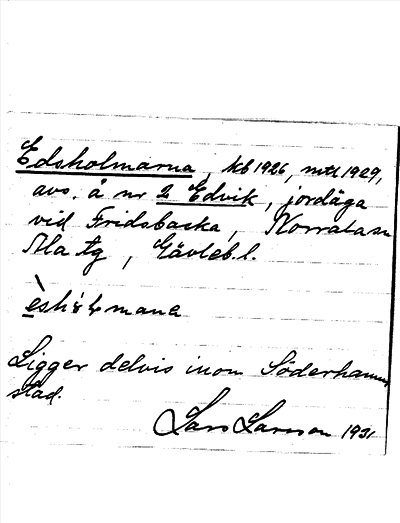 Edsholmarna, kb 1926, mtl 1929,
avs. å nr 2 Edvik, jordäga
vid Fridsbacka, Norrala sn
Ala tg, Gävleb. l.
Ligger delvis inom Söderhamns
stad.
Lars Larsson 1931